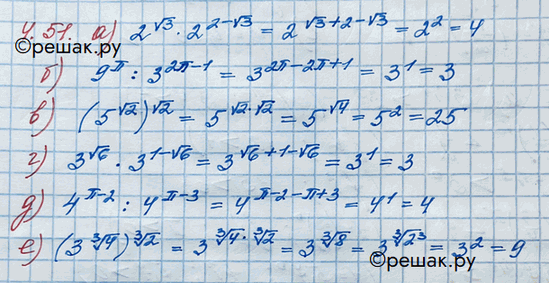 4.51. а) 2^√3 · 2^(2-√3) = 2^(√3+2-√3) = 2² = 4
©решак.ру
б) 9^π : 3^(2π-1) = 3^(2π-2π+1) = 3¹ = 3
в) (5^√2)^√2 = 5^(√2·√2) = 5^√4 = 5² = 25
г) 3^√6 · 3^(1-√6) = 3^(√6+1-√6) = 3¹ = 3
д) 4^(π-2) : 4^(π-3) = 4^(π-2-π+3) = 4¹ = 4
е) (3^∛4)^∛2 = 3^(∛4·∛2) = 3^∛8 = 3^∛2³ = 3² = 9
©решак.ру